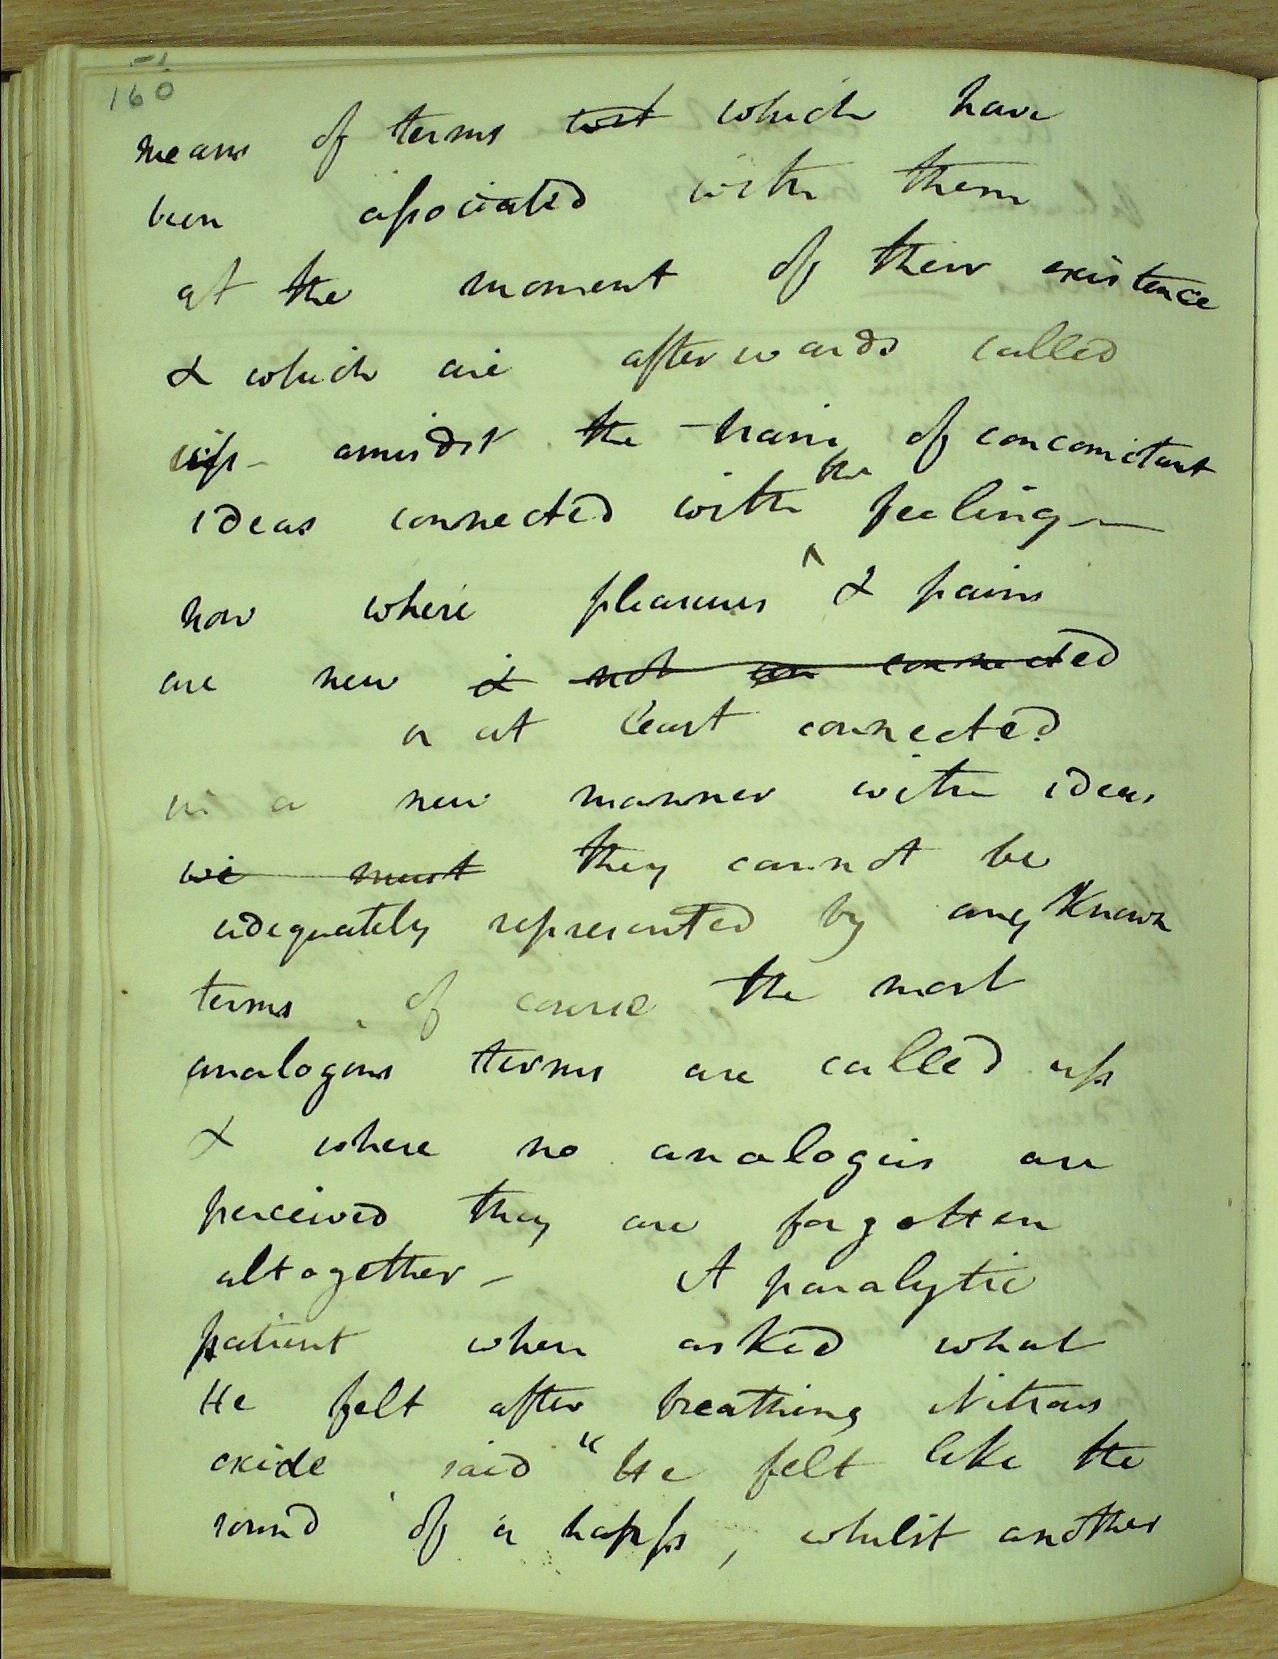 160
means of terms which have
been associated with them
at the moment of their existence
& which are afterwards called
up - amidst the train of concomitant
ideas connected with the feeling —
now where pleasures & pains
are new & not connected
or at least connected
in a new manner with ideas
we must they cannot be
adequately represented by any Known
terms . of course the most
analogous terms are called up
& where no analogies are
perceived they are forgotten
altogether - A paralytic
patient when asked what
He felt after breathing Nitrous
oxide said "He felt like the
sound of a harp , whilst another